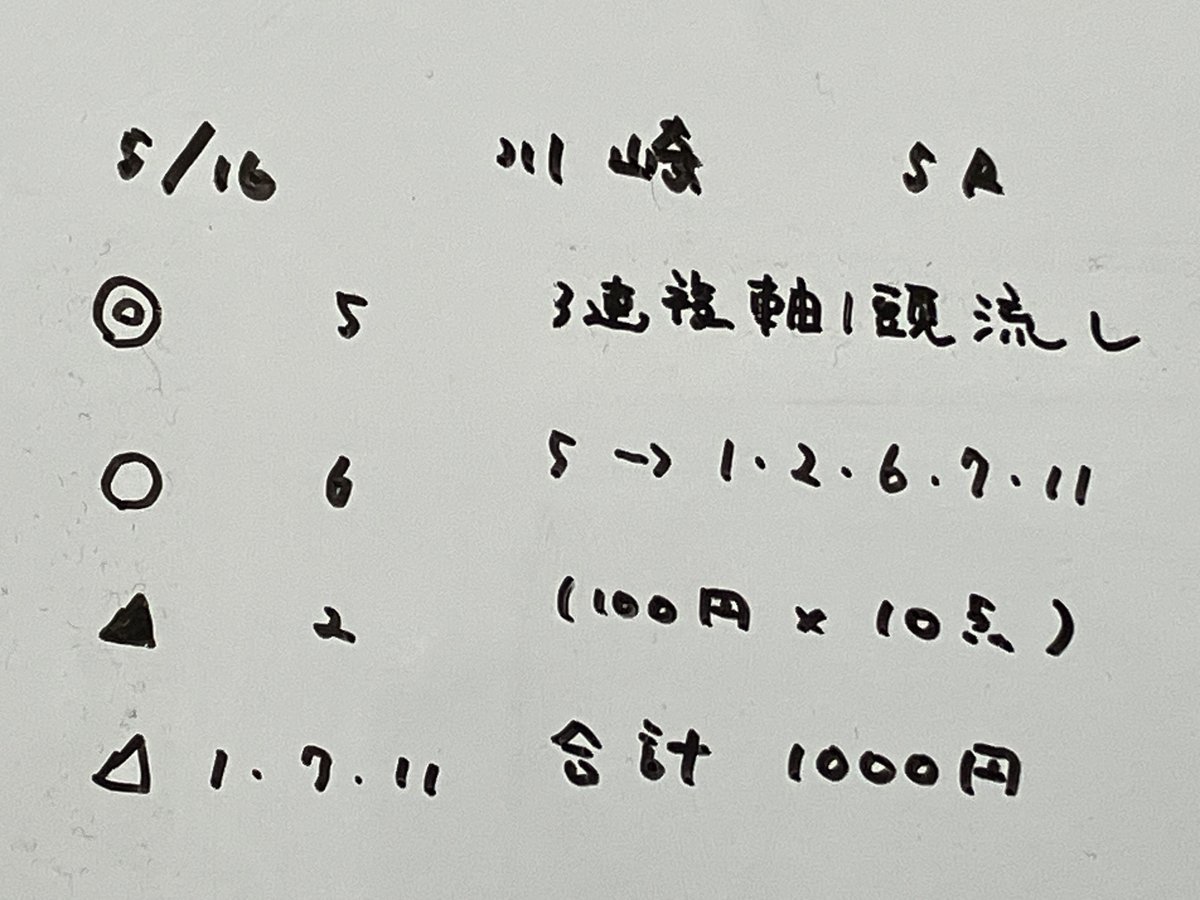 5/16 川崎 5R
◎ 5 3連複軸1頭流し
○ 6 5→1.2.6.7.11
▲ 2 (100円×10点)
△ 1.7.11 合計 1000円